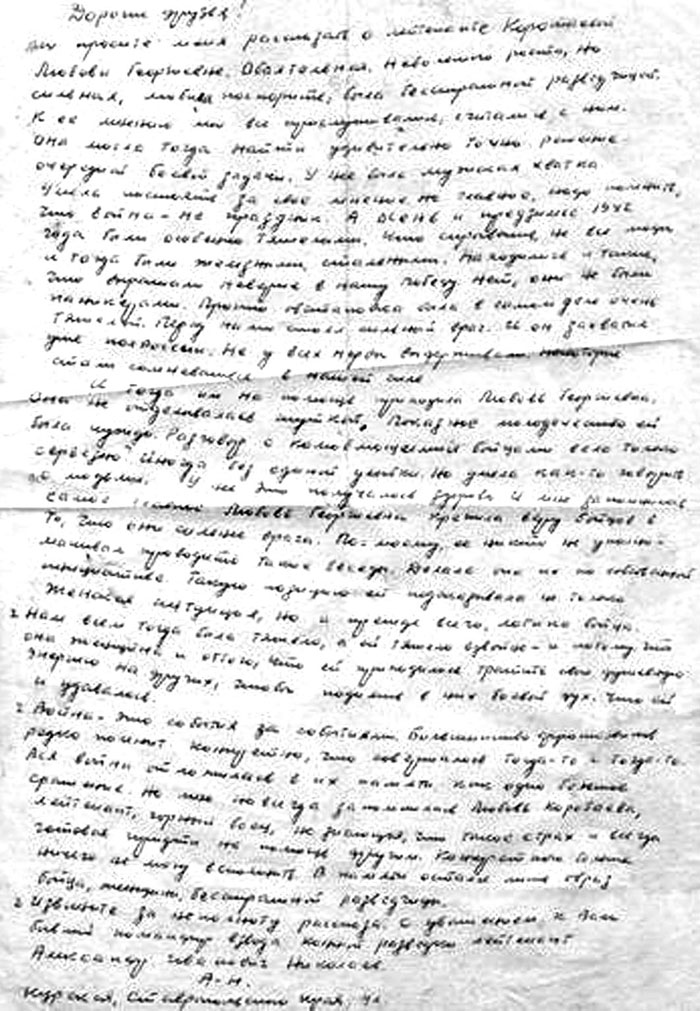 Дорогие друзья!
Вы просите меня рассказать о лейтенанте Коробаевой
Любови Георгиевне. Обаятельная. Невысокого роста, но
сильная, любила поспорить, была бесстрашной разведчицей.
К ее мнению мы все прислушивались, считались с ним.
Она могла тогда найти удивительно точно решение
очередной боевой задачи. У нее была мужская хватка.
Умела постоять за свое мнение. Но главное, надо помнить,
что война – не праздник. А осень и предзимье 1942
года были особенно тяжелыми. Что скрывать, не все люди
и тогда были железными, стальными. Находились и такие,
что выражали неверие в нашу победу. Нет, они не были
паникерами. Просто обстановка была в самом деле очень
тяжелой. Перед нами стоял сильный враг. И он захватил
уже полРоссии. Не у всех нервы выдерживали. Некоторые
стали сомневаться в нашей силе
И тогда им на помощь приходила Любовь Георгиевна.
Она не отделывалась шуткой. Показное молодечество ей
было чуждо. Разговор с колеблющимися бойцами вела только
серьезно. Иногда без единой улыбки. Но умела как-то говорить
с людьми. У нее это получалось здорово. И мне запомнилось
самое главное: Любовь Георгиевна крепила веру бойцов в
то, что они сильнее врага. По-моему, ее никто не уполно-
мачивал проводить такие беседы. Делала она их по собственной
инициативе. Такую позицию ей подсказывала не только
женская интуиция, но и прежде всего, логика бойца.
Нам всем тогда было тяжело, а ей тяжело вдвойне – и потому, что
она женщина и оттого, что ей приходилось тратить свою душевную
энергию на других, чтобы поднять в них боевой дух. Что ей
и удавалось.
Война – это события за событиями. Большинство фронтовиков
редко помнит конкретно, что совершалось тогда-то и тогда-то.
Вся война отложилась в их памяти как одно большое
сражение. Но мне навсегда запомнилась Любовь Коробаева,
лейтенант, гордый боец, не знающая, что такое страх и всегда
готовая придти на помощь другим. Конкретного больше
ничего не могу вспомнить. В памяти остался лишь образ
бойца, женщины, бесстрашной разведчицы.
Извините за неполноту рассказа. С уважением к Вам
бывший командир взвода конной разведки лейтенант
Александр Иванович Николаев.
А.Н.
Курская, Ставропольского края,